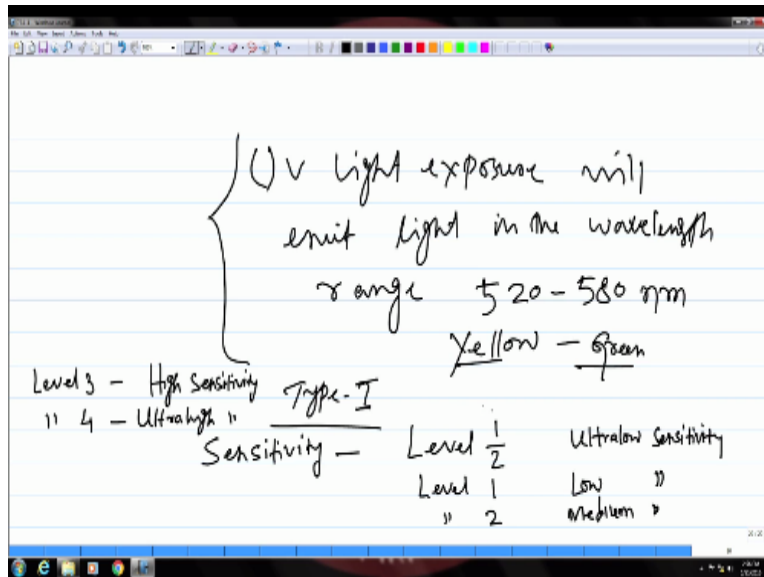 UV light exposure will
emit light in the wavelength
range 520 - 580 nm
Yellow - Green
Level 3 - High Sensitivity
" 4 - Ultrahigh "
Type - I
Sensitivity - Level 1/2 Ultralow Sensitivity
Level 1 Low "
" 2 Medium "